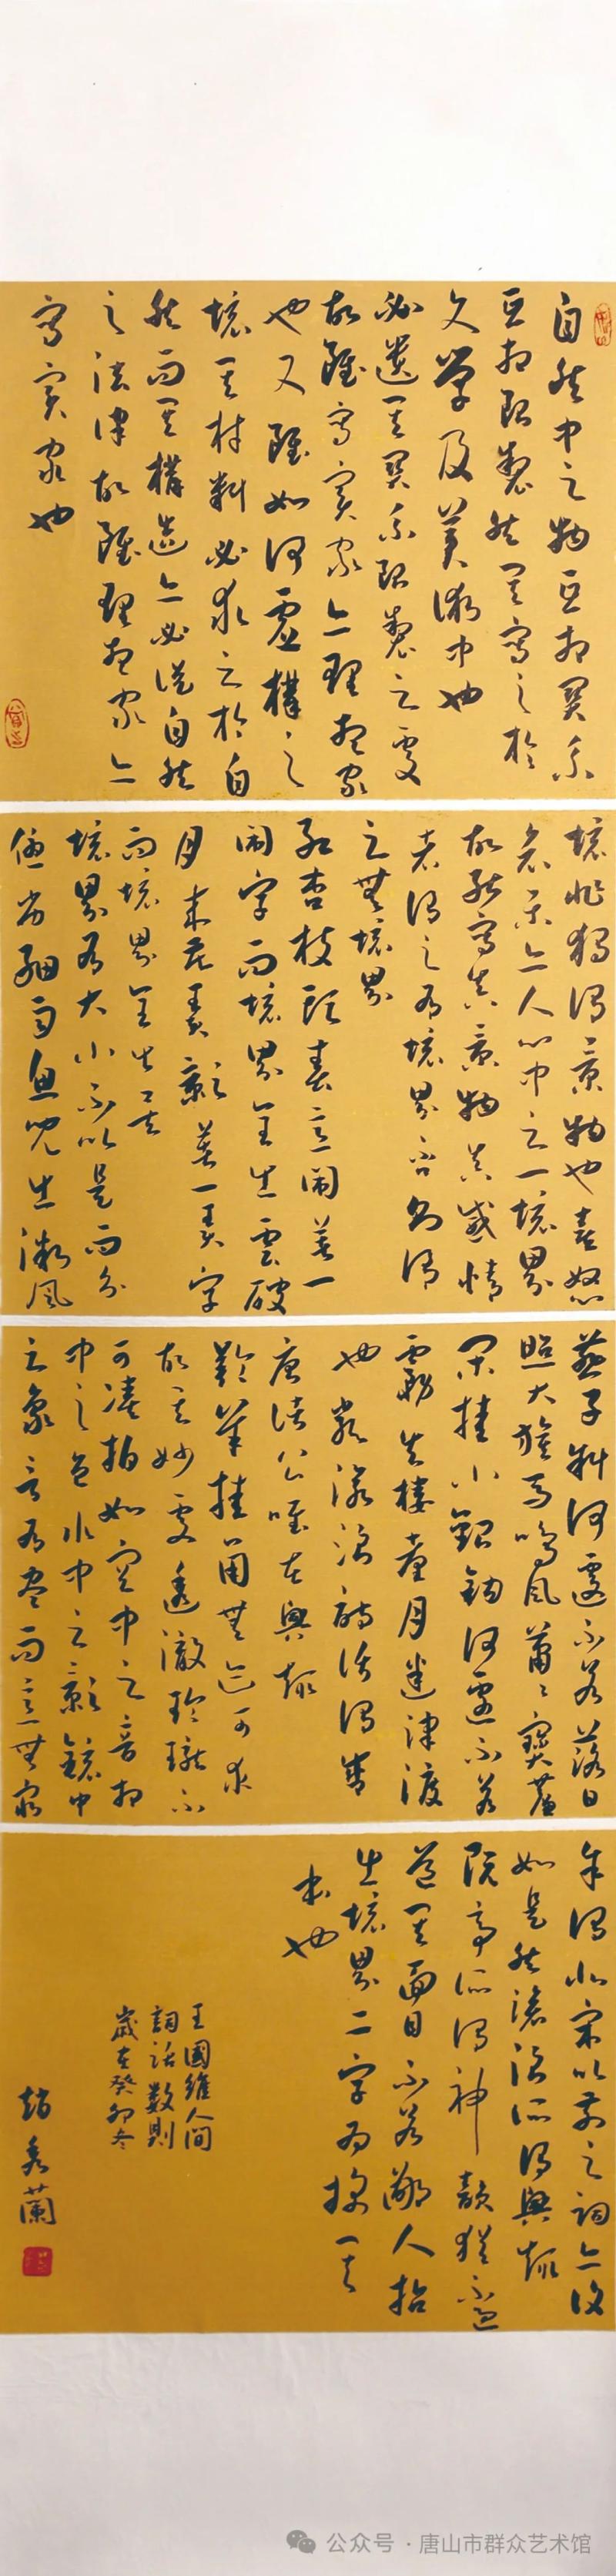 自然中之物互相關系
互相限製然其寫之於
文學及美術中也
必遺其關系限製之處
故雖寫實家亦理想家
也又雖如何虛構之
境其材料必求之於自
然而其構造亦必從自然
之法律故雖理想家亦
寫實家也
境非獨謂景物也喜怒
哀樂亦人心中之一境界
故能寫真景物真感情
者謂之有境界否則謂
之無境界
紅杏枝頭春意鬧著一
鬧字而境界全出雲破
月來花弄影著一弄字
而境界全出矣
境界有大小不以是而分
優劣細雨魚兒出微風
燕子斜何遽不若落日
照大旗馬鳴風蕭〻寶簾
閑掛小銀鉤何遽不若
霧失樓臺月迷津渡
也嚴滄浪詩話謂盛
唐諸公唯在興趣
羚羊掛角無跡可求
故其妙處透徹玲瓏不
可湊拍如空中之音相
中之色水中之影鏡中
之象言有盡而意無窮
余謂北宋以前之詞亦復
如是然滄浪所謂興趣
阮亭所謂神韻猶不過
道其面目不若鄙人拈
出境界二字為探其
本也
王國維人間
詞話數則
歲在癸卯冬
趙秀蘭
公众号·唐山市群众艺术馆